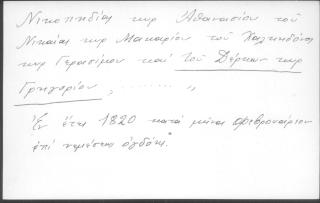 Νικομηδίας κυρ Ἀθανασίου τοῦ
Νικαίας κυρ Μακαρίου τοῦ Χαλκηδόνος
κυρ Γερασίμου καί τοῦ Δέρκων κυρ
Γρηγορίου, ........ „
Ἐν ἔτει 1820 κατά μῆνα Φεβρουάριον
ἐπί νεμέσεως ὀγδόης."